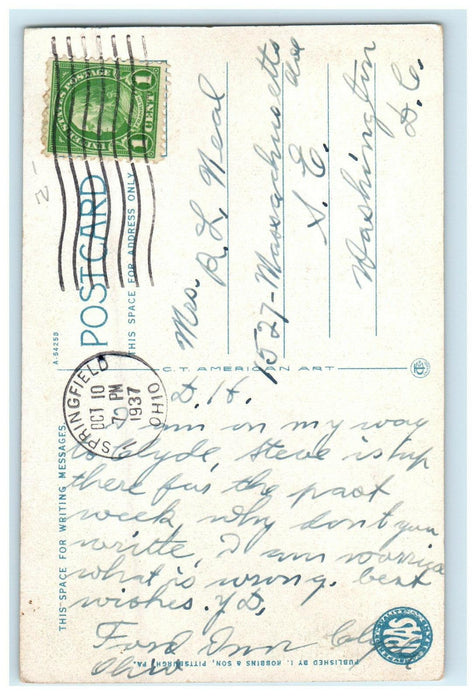 UNITED STATES POSTAGE
1 CENT 1
SPRINGFIELD
OCT 10
PM
1937
OHIO
POSTCARD
THIS SPACE FOR ADDRESS ONLY
A-5425B
THIS SPACE FOR WRITING MESSAGES
C.T. AMERICAN ART
Mrs. R L Neal
1527-Massachusetts
Ave
S. E.
Washington
D. C.
D. H.
am on my way
to Clyde, Steve is up
there for the past
week, why don't you
writte, I am worried
what is wrong. best
wishes. YD.
Ford Inn
Ohio
PUBLISHED BY I. ROBBINS & SON, PITTSBURGH, PA.